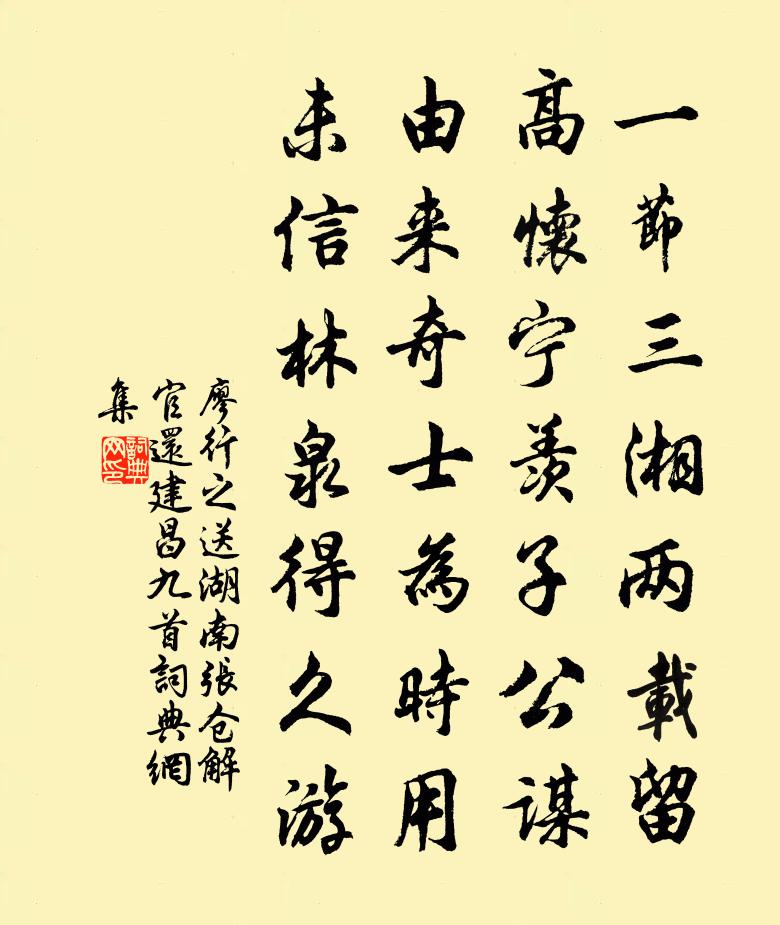 一節三湘两載留
髙懷宁羨子公謀
由来奇士為時用
未信林泉得久游
廖行之送湖南張仓解
官還建昌九首詞典網
集
詞典
网印